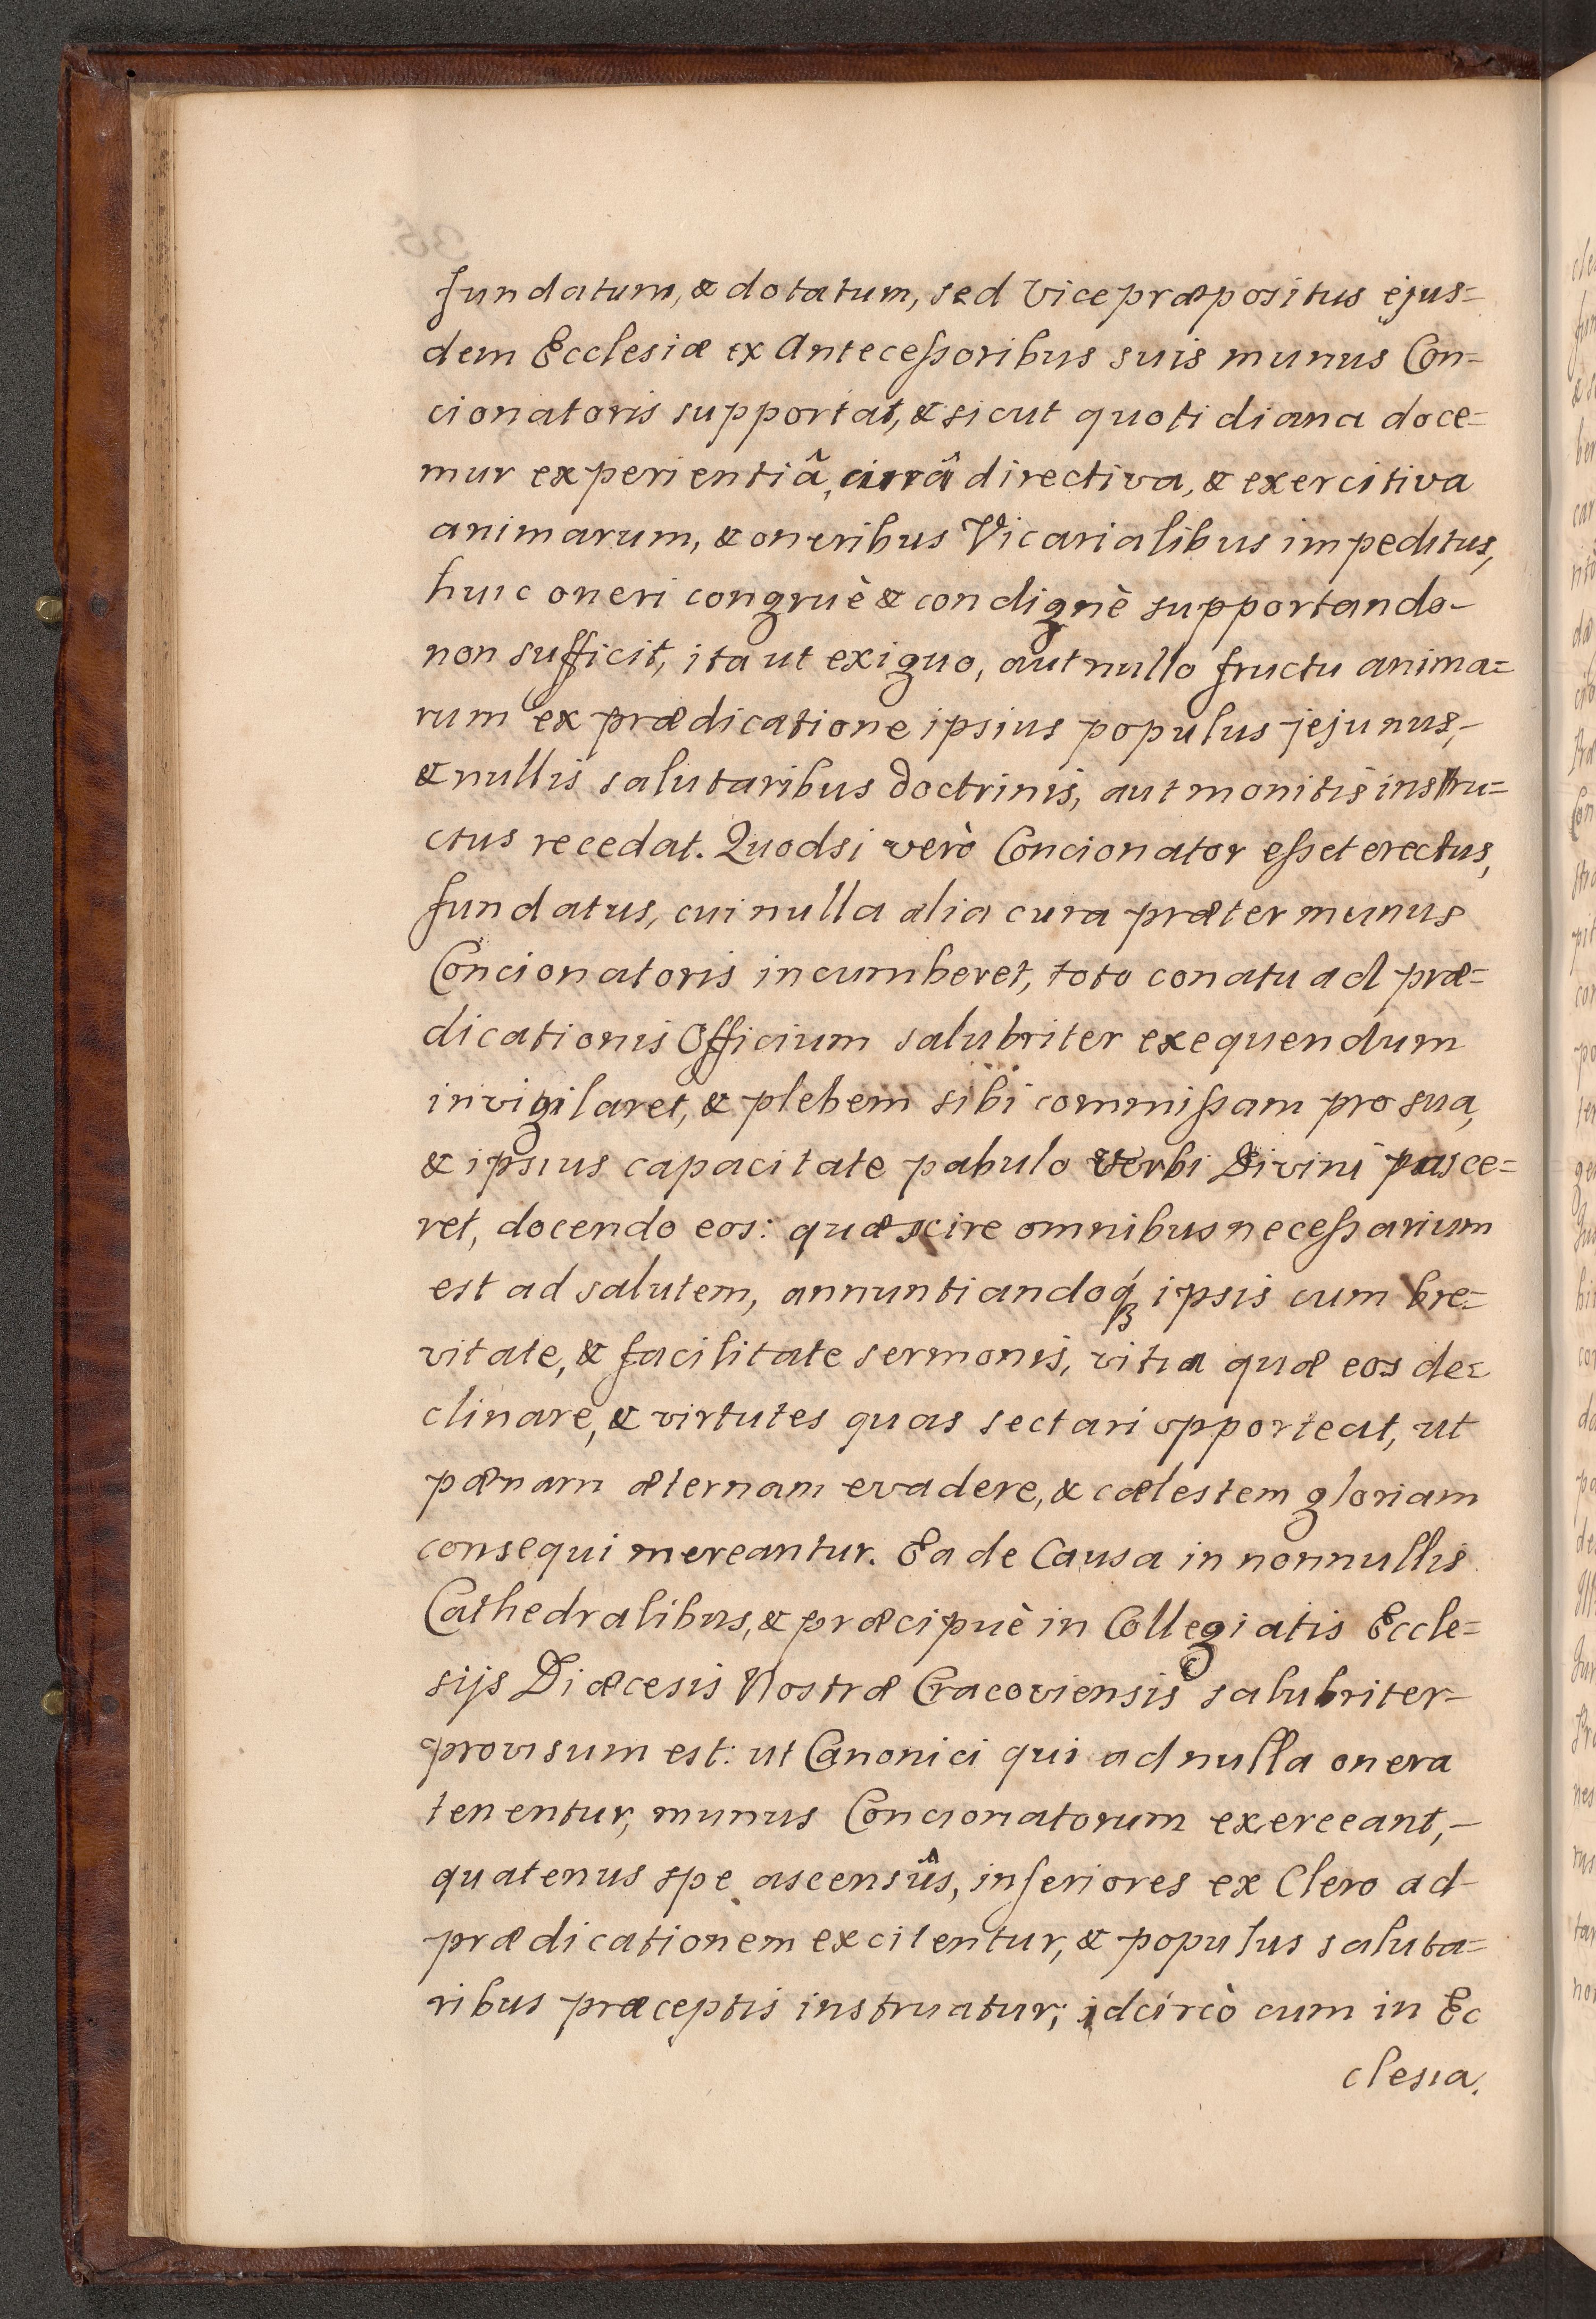 fundatum, & dotatum, sed Vicepræpositus ejus=
dem Ecclesiæ ex Antecessoribus suis munus Con=
cionatoris supportat, & sicut quotidiana doce=
mur experientiâ, curâ directiva, & exercitiva
animarum, & oneribus Vicarialibus impeditus,
huic oneri congruè & condignè supportando-
non sufficit, ita ut exiguo, aut nullo fructu anima=
rum ex prædicatione ipsius populus jejunus,-
& nullis salutaribus doctrinis, aut monitis instru=
ctus recedat. Quodsi verò Concionator esset erectus,
fundatus, cui nulla alia cura præter munus
Concionatoris incumberet, toto conatu ad præ=
dicationis Officium salubriter exequendum
invigilaret, & plebem sibi commissam pro sua,
& ipsius capacitate pabulo Verbi Divini pasce=
ret, docendo eos: quæ scire omnibus necessarium
est ad salutem, annuntiandoq́ꝫ ipsis cum bre=
vitate, & facilitate sermonis, vitia quæ eos de=
clinare, & virtutes quas sectari opporteat, ut
pænam æternam evadere, & cælestem gloriam
consequi mereantur. Ea de Causa in nonnullis
Cathedralibus, & præcipuè in Collegiatis Eccle=
sijs Diæcesis Nostræ Cracoviensis salubriter-
provisum est: ut Canonici qui ad nulla onera
tenentur, munus Concionatorum exerceant,-
quatenus spe ascensûs, inferiores ex Clero ad
prædicationem excitentur, & populus saluta=
ribus præceptis instruatur; idcircò cum in Ec
clesia.